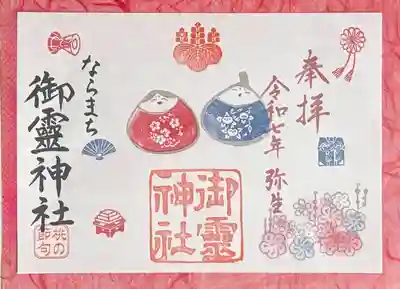 奉拝
令和七年 弥生
御靈神社
ならまち
御靈神社
桃の節句